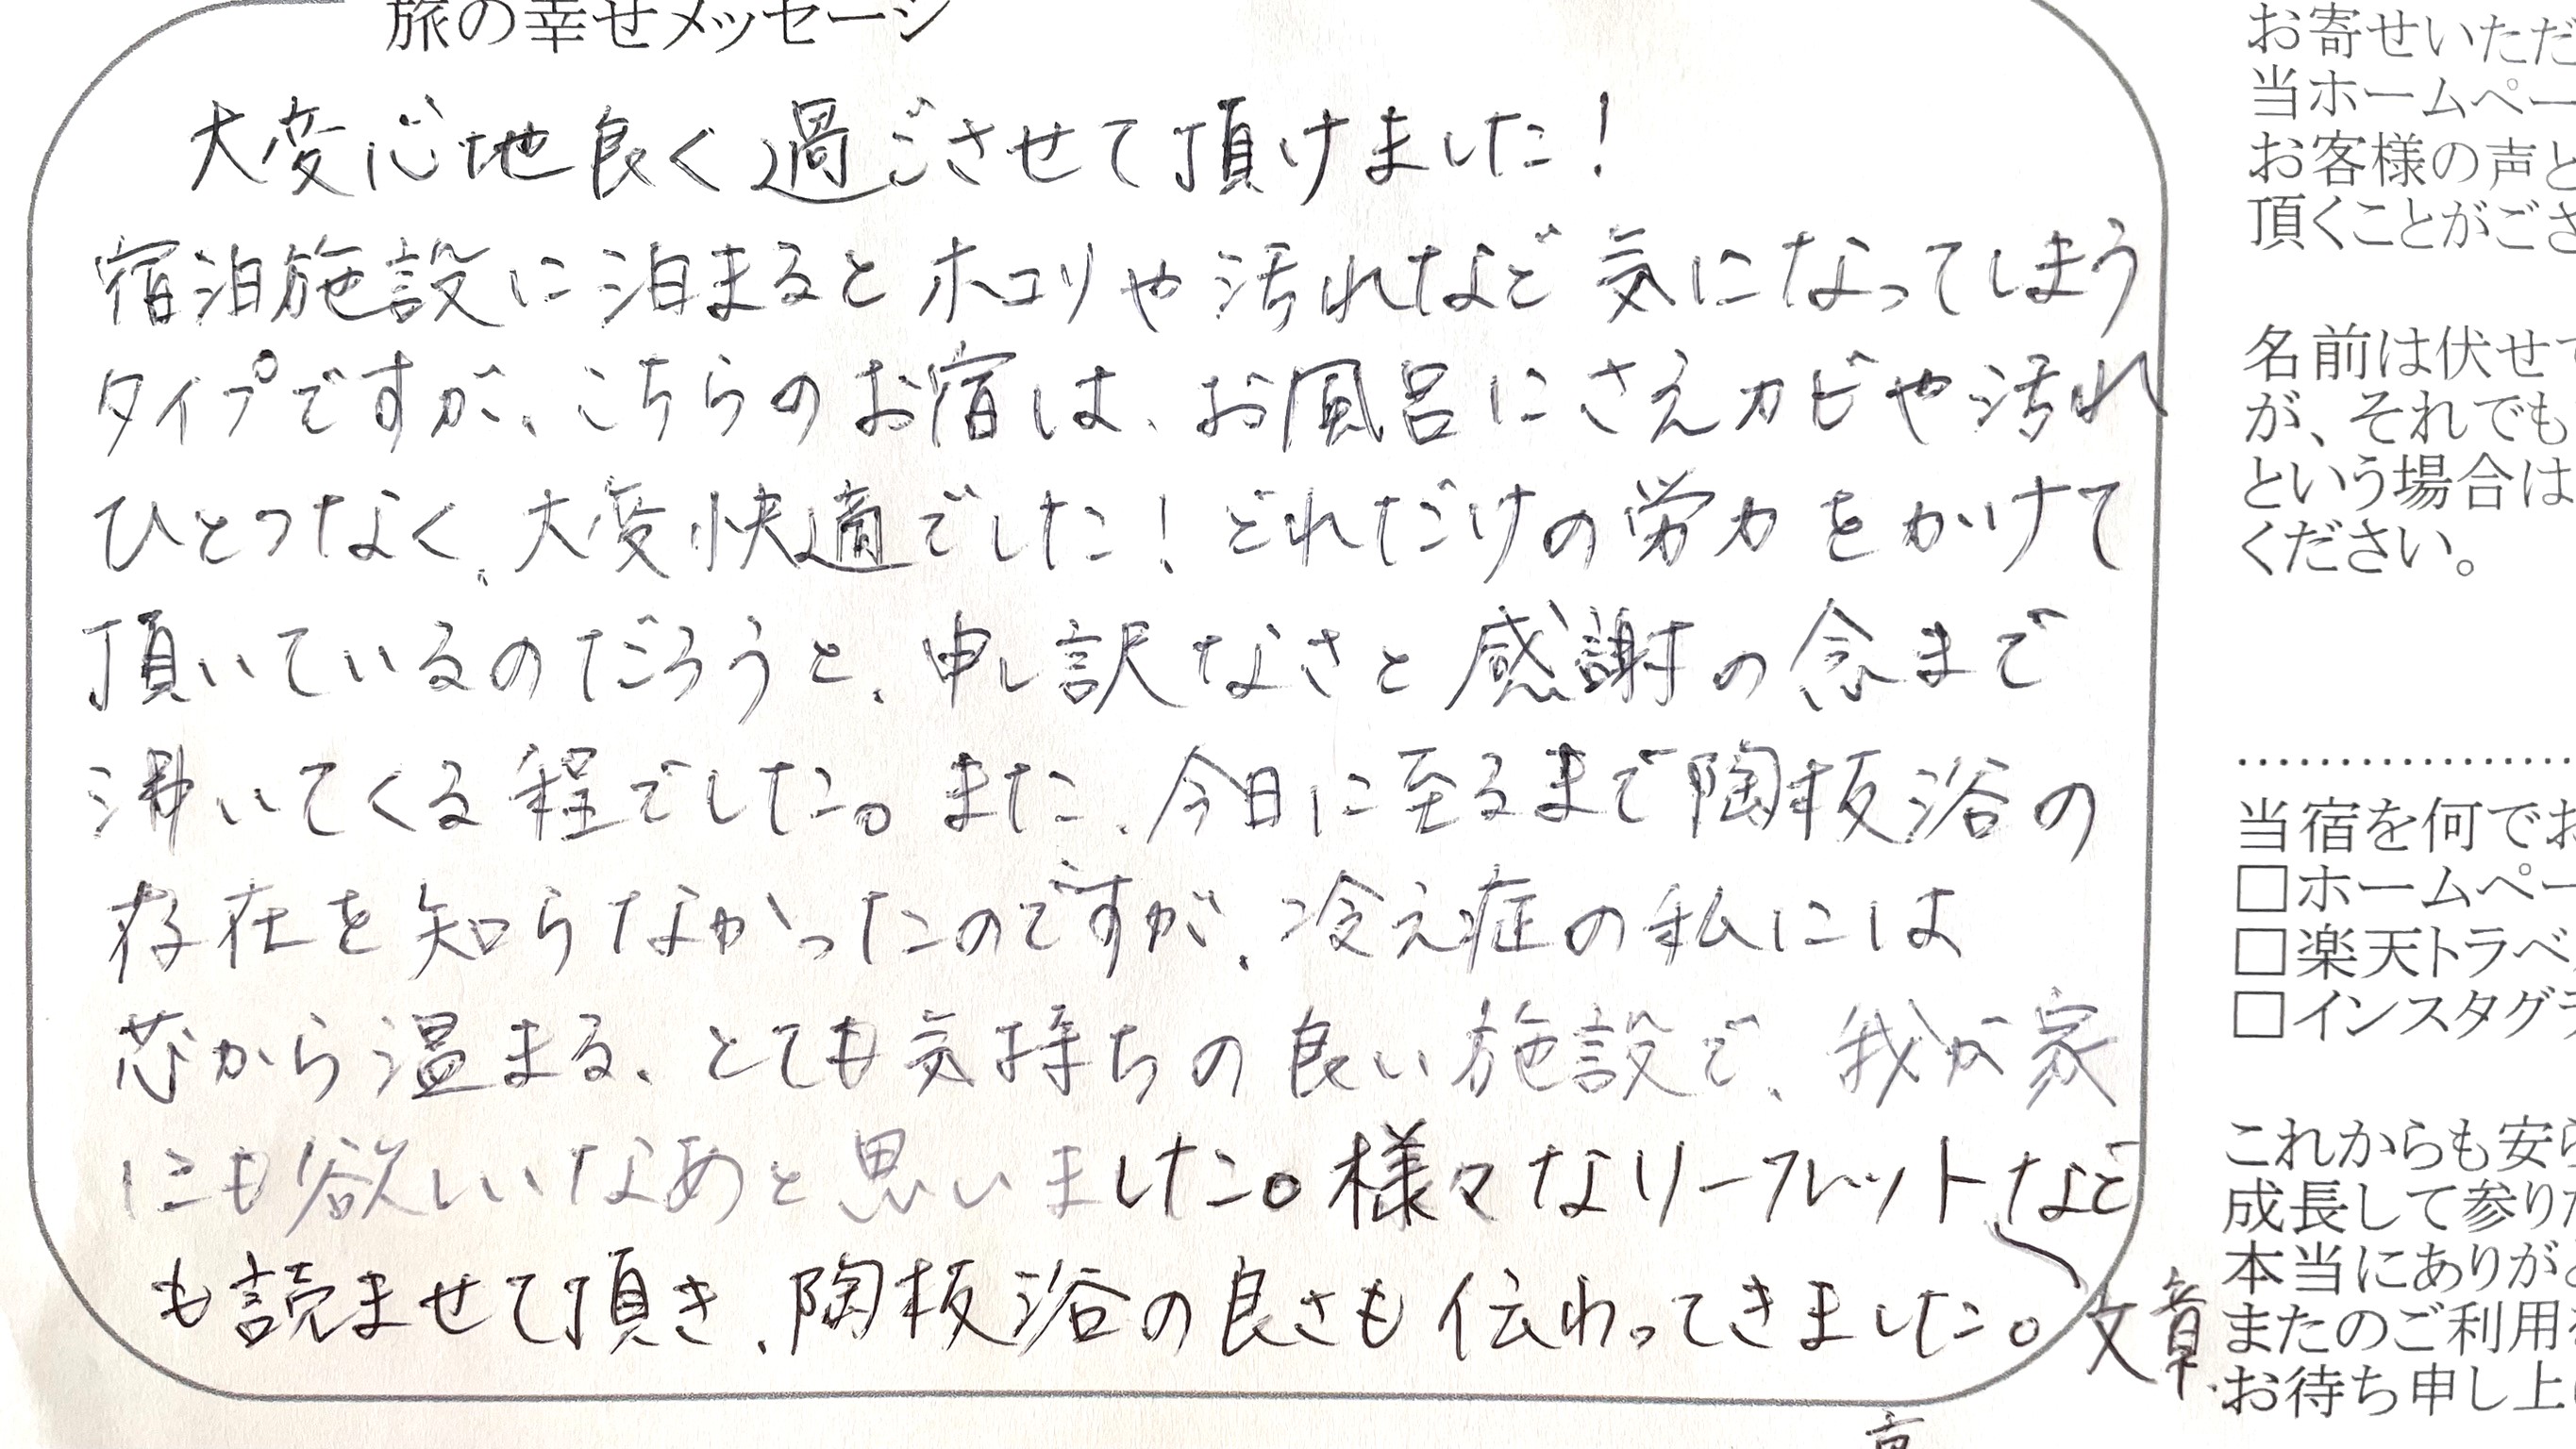 旅の幸せメッセージ
大変心地良く過ごさせて頂けました！
宿泊施設に泊まるとホコリや汚れなど気になってしまう
タイプですが、こちらのお宿は、お風呂にさえカビや汚れ
ひとつなく、大変快適でした！どれだけの労力をかけて
頂いているのだろうと、申し訳なさと感謝の念まで
沸いてくる程でした。また、今日に至るまで陶板浴の
存在を知らなかったのですが、冷え症の私には
芯から温まる、とても気持ちの良い施設で、我が家
にも欲しいなあと思いました。様々なリーフレットなど
も読ませて頂き、陶板浴の良さも伝わってきました。
文章
お寄せいただ
当ホームペー
お客様の声と
頂くことがござ
名前は伏せて
が、それでも
という場合は
ください。
当宿を何でお
□ホームペー
□楽天トラベ
□インスタグラ
これからも安ら
成長して参りた
本当にありがと
またのご利用を
お待ち申し上げ